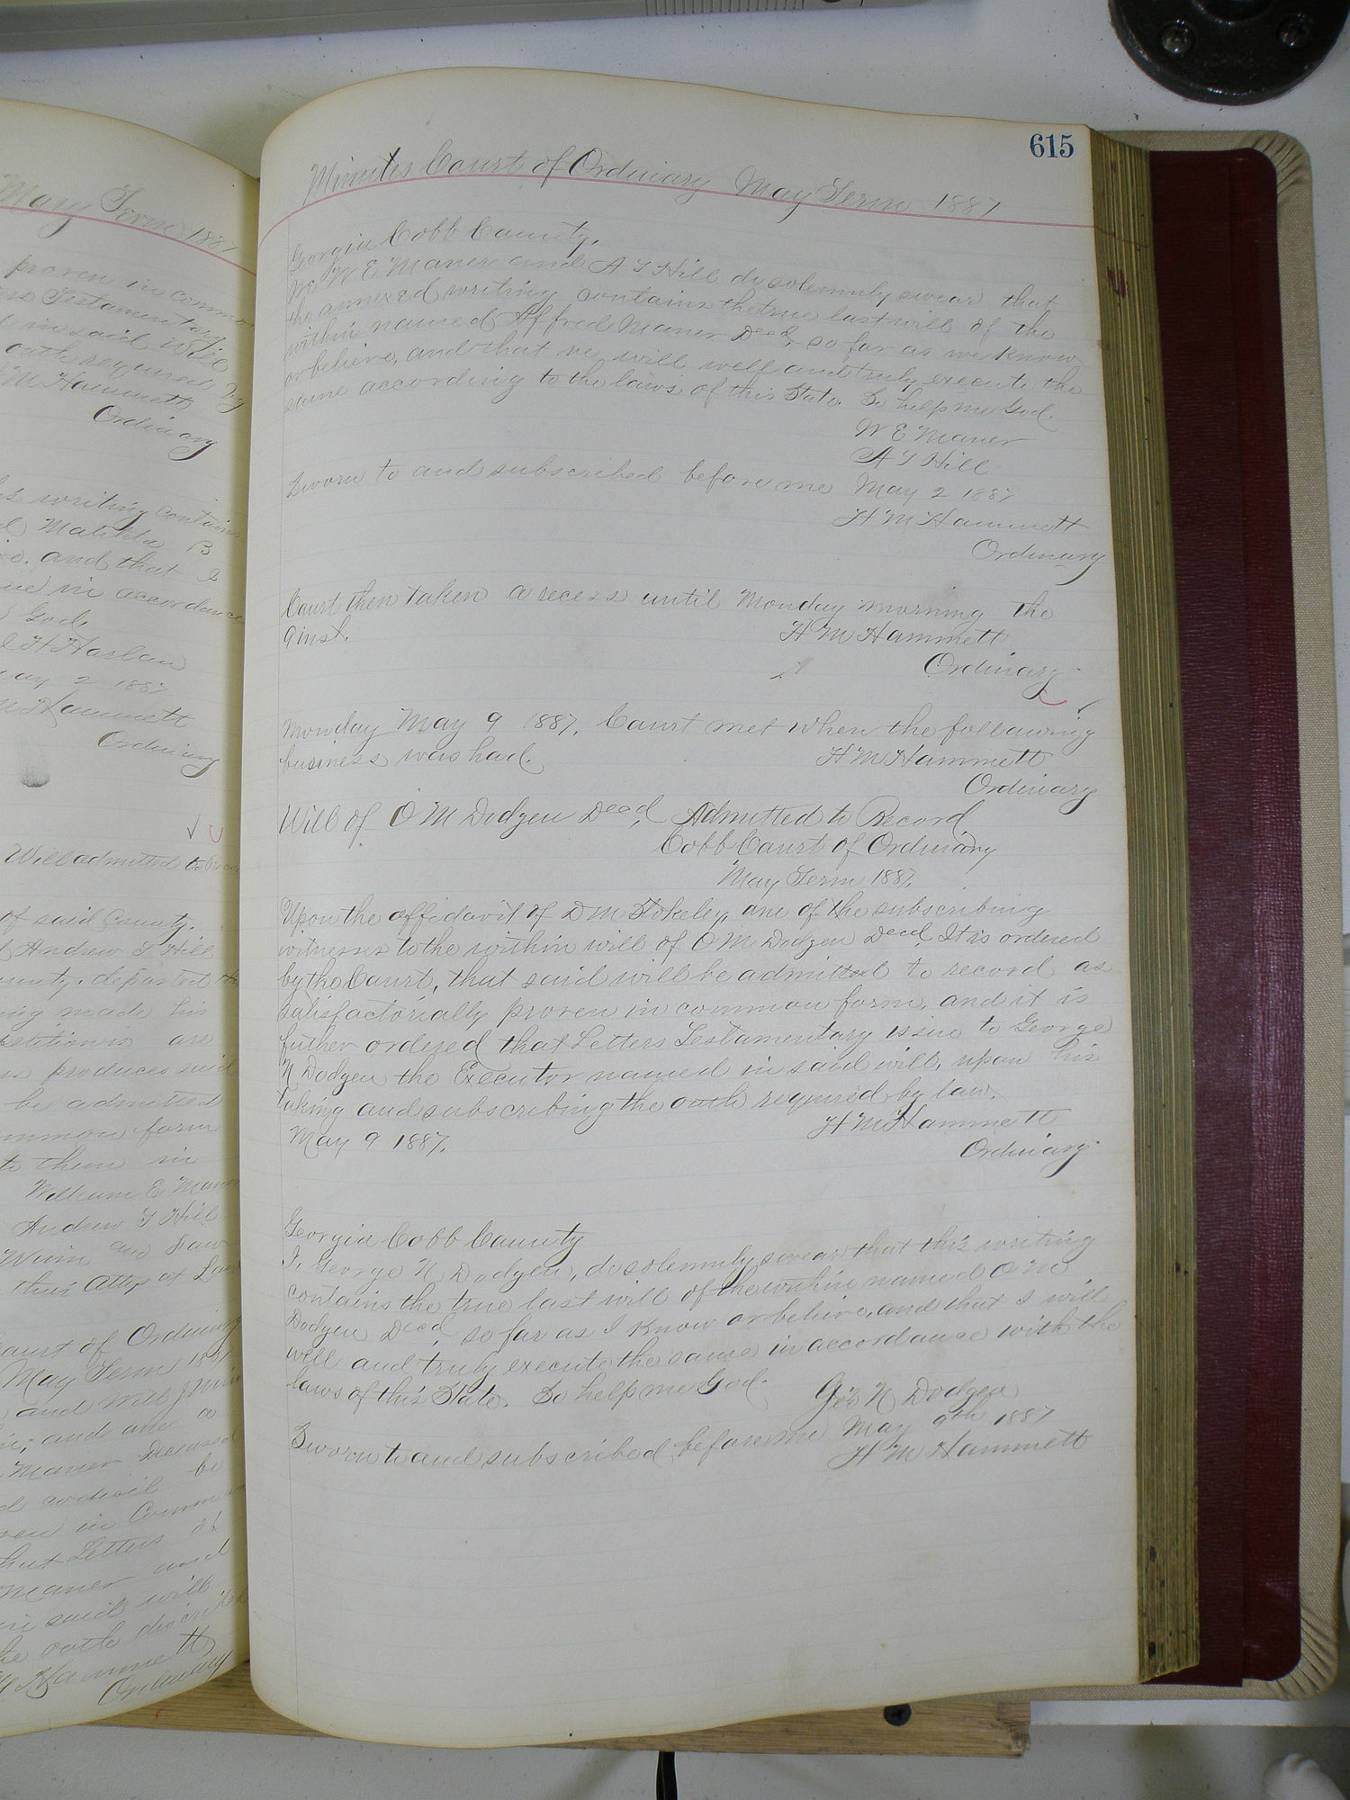 May Term 1887
proven in common
Testamentary
in said Will
oath required by
H M Hammett
Ordinary
writing contains
Matilda B
and that I
in accordance
God.
H Harlan
May 2 1887
Hammett
Ordinary
Will admitted to
of said County.
Andrew J Hill
County, departed
made his
petitioners are
produces said
be admitted
common form
to them in
William E Maner
Andrew J Hill
Winn and
their Atty at Law
Court of Ordinary
May Term 1887
and
and
Maner Deceased
codicil be
in Common
that Letters
Maner and
in said will
the oath
Hammett
Ordinary
615
Minutes Court of Ordinary May Term 1887
Georgia Cobb County,
We W E Maner and A J Hill do solemnly swear that
the annexed writing contains the true last will of the
within named Alfred Maner Decd, so far as we know
or believe, and that we will well and truly execute the
same according to the laws of this State. So help me God.
W E Maner
A J Hill
Sworn to and subscribed before me May 2 1887
H M Hammett
Ordinary
Court then taken a recess until Monday morning the
9 inst.
H M Hammett
Ordinary
Monday May 9 1887, Court met when the following
business was had.
H M Hammett
Ordinary
Will of O M Dodgen Decd, Admitted to Record
Cobb Court of Ordinary
May Term 1887.
Upon the affidavit of D M Stokely, one of the subscribing
witnesses to the within will of O M Dodgen Decd, It is ordered
by the Court, that said will be admitted to record as
satisfactorially proven in common form, and it is
futher ordered that Letters Testamentary issue to George
N Dodgen the Executor named in said will, upon his
taking and subscribing the oath required by law.
May 9 1887.
H M Hammett
Ordinary
Georgia Cobb County
I, George N Dodgen, do solemnly swear that this writing
contains the true last will of the within named O M
Dodgen Decd, so far as I know or believe, and that I will
well and truly execute the same in accordance with the
laws of this State. So help me God.
Geo N Dodgen
Sworn to and subscribed before me May 9th 1887
H M Hammett